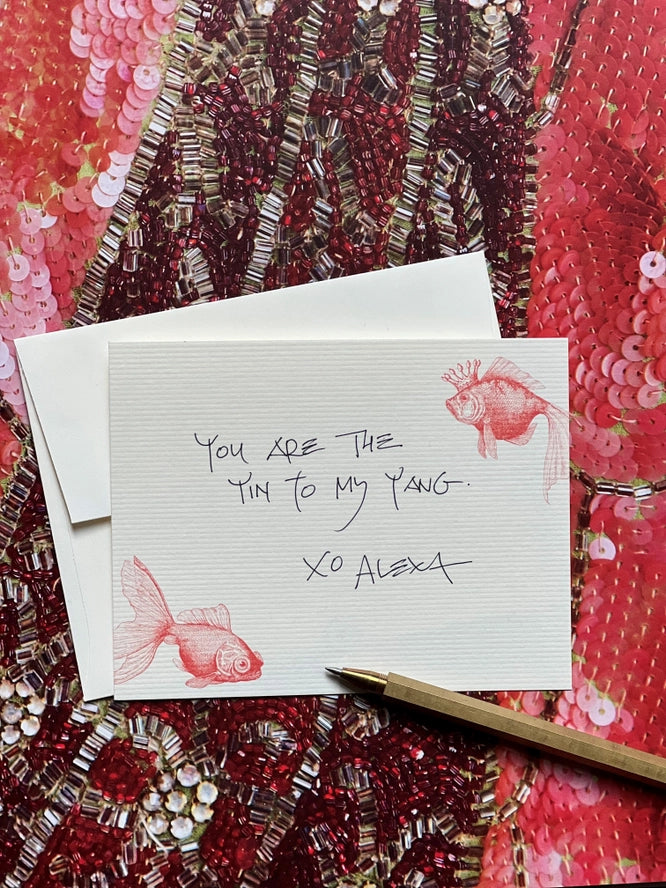 YOU ARE THE
YIN TO MY YANG.
XO ALEXA